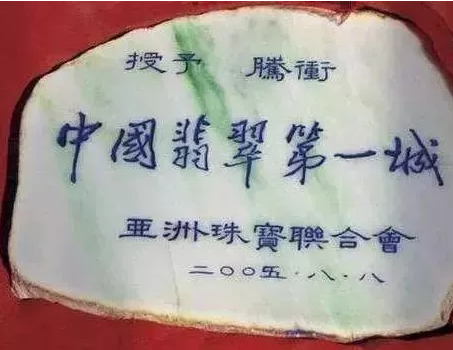 授予 騰衝
中國翡翠第一城
亞洲珠寶聯合會
二〇〇五·八·八